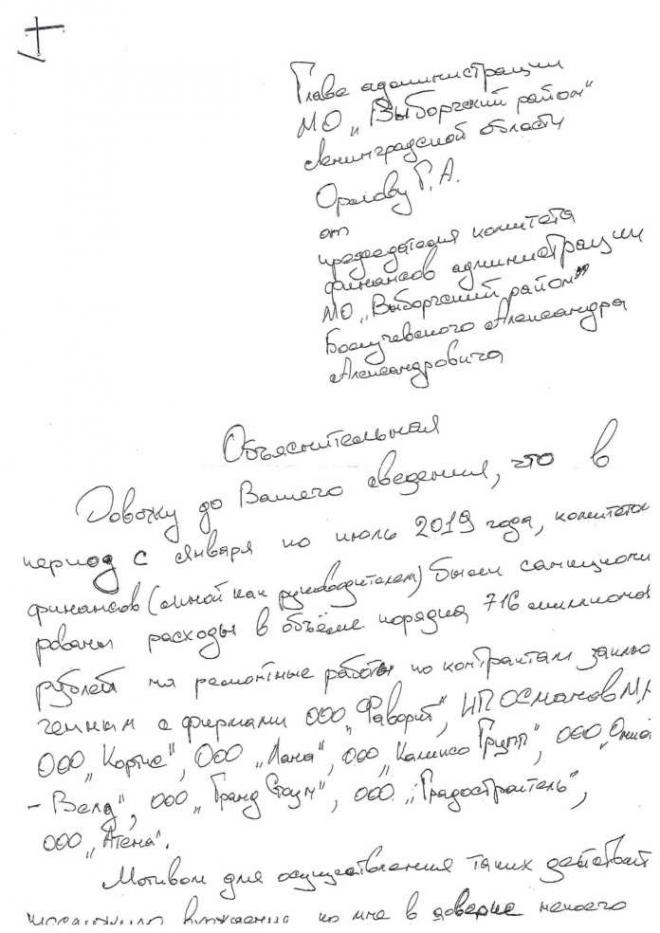 Главе администрации
МО „Выборгский район"
Ленинградской области
Орлову Г. А.
от
председателя комитета
финансов администрации
МО „Выборгский район"
Болучевского Александра
Александровича
Объяснительная
Довожу до Вашего сведения, что в
период с января по июль 2019 года, комитетом
финансов (мной как руководителем) были санкциони
рованы расходы в объёме порядка 716 миллионов
рублей на ремонтные работы по контрактам заклю
ченным с фирмами ООО „Фаворит", ИП Османов М.
ООО „Кортне", ООО „Лана", ООО „Калипсо Групп", ООО
- Велд", ООО „Гранд Строй", ООО „Градостроитель",
ООО „Атена".
Мотивом для осуществления таких действий
ко мне в доверие некоего